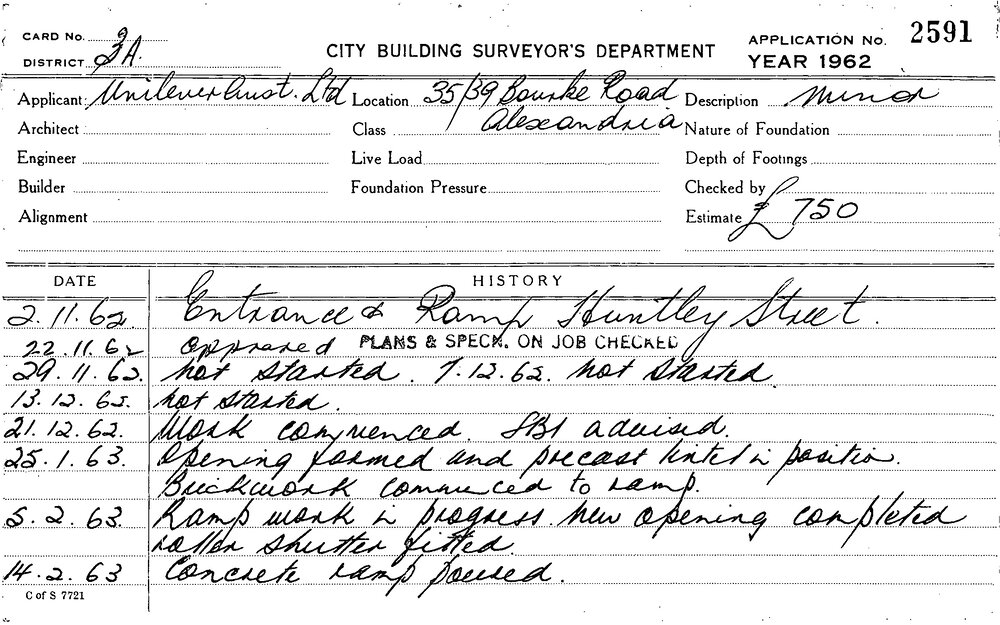 CARD No.
DISTRICT 3A.
CITY BUILDING SURVEYOR'S DEPARTMENT
APPLICATION No. 2591
YEAR 1962
Applicant: Unilever Aust. Ltd Location 35/39 Bourke Road Description Minor
Architect Class Alexandria Nature of Foundation
Engineer Live Load Depth of Footings
Builder Foundation Pressure Checked by
Alignment Estimate £ 750
DATE HISTORY
2.11.62. Entrance & Ramp Huntley Street.
22.11.62 approved PLANS & SPECN. ON JOB CHECKED
29.11.62. not started. 7.12.62. not started.
13.12.62. not started.
21.12.62. Work commenced. SBI advised.
25.1.63. Opening formed and precast lintel in position.
Brickwork commenced to ramp.
5.2.63. Ramp work in progress new opening completed
roller shutter fitted.
14.2.63 Concrete ramp poured.
C of S 7721